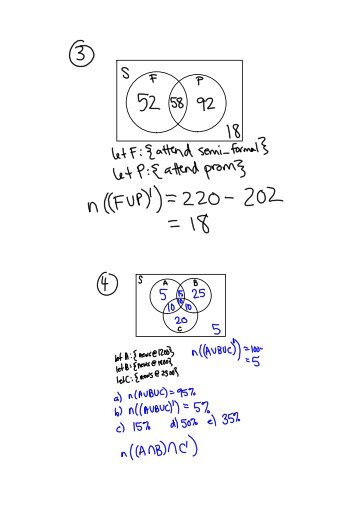 3
S
F P
52 58 92
18
let F: {attend semi-formal}
let P: {attend prom}
n((FUP)') = 220 - 202
= 18
4
S
A B
5 15 25
10
10 10
20
C
5
let A: {news @ 1200}
let B: {news @ 1800}
let C: {news @ 2300}
n((AUBUC)') = 100-
= 5
a) n(AUBUC) = 95%
b) n((AUBUC)') = 5%
c) 15% d) 50% e) 35%
n((A∩B)∩C')